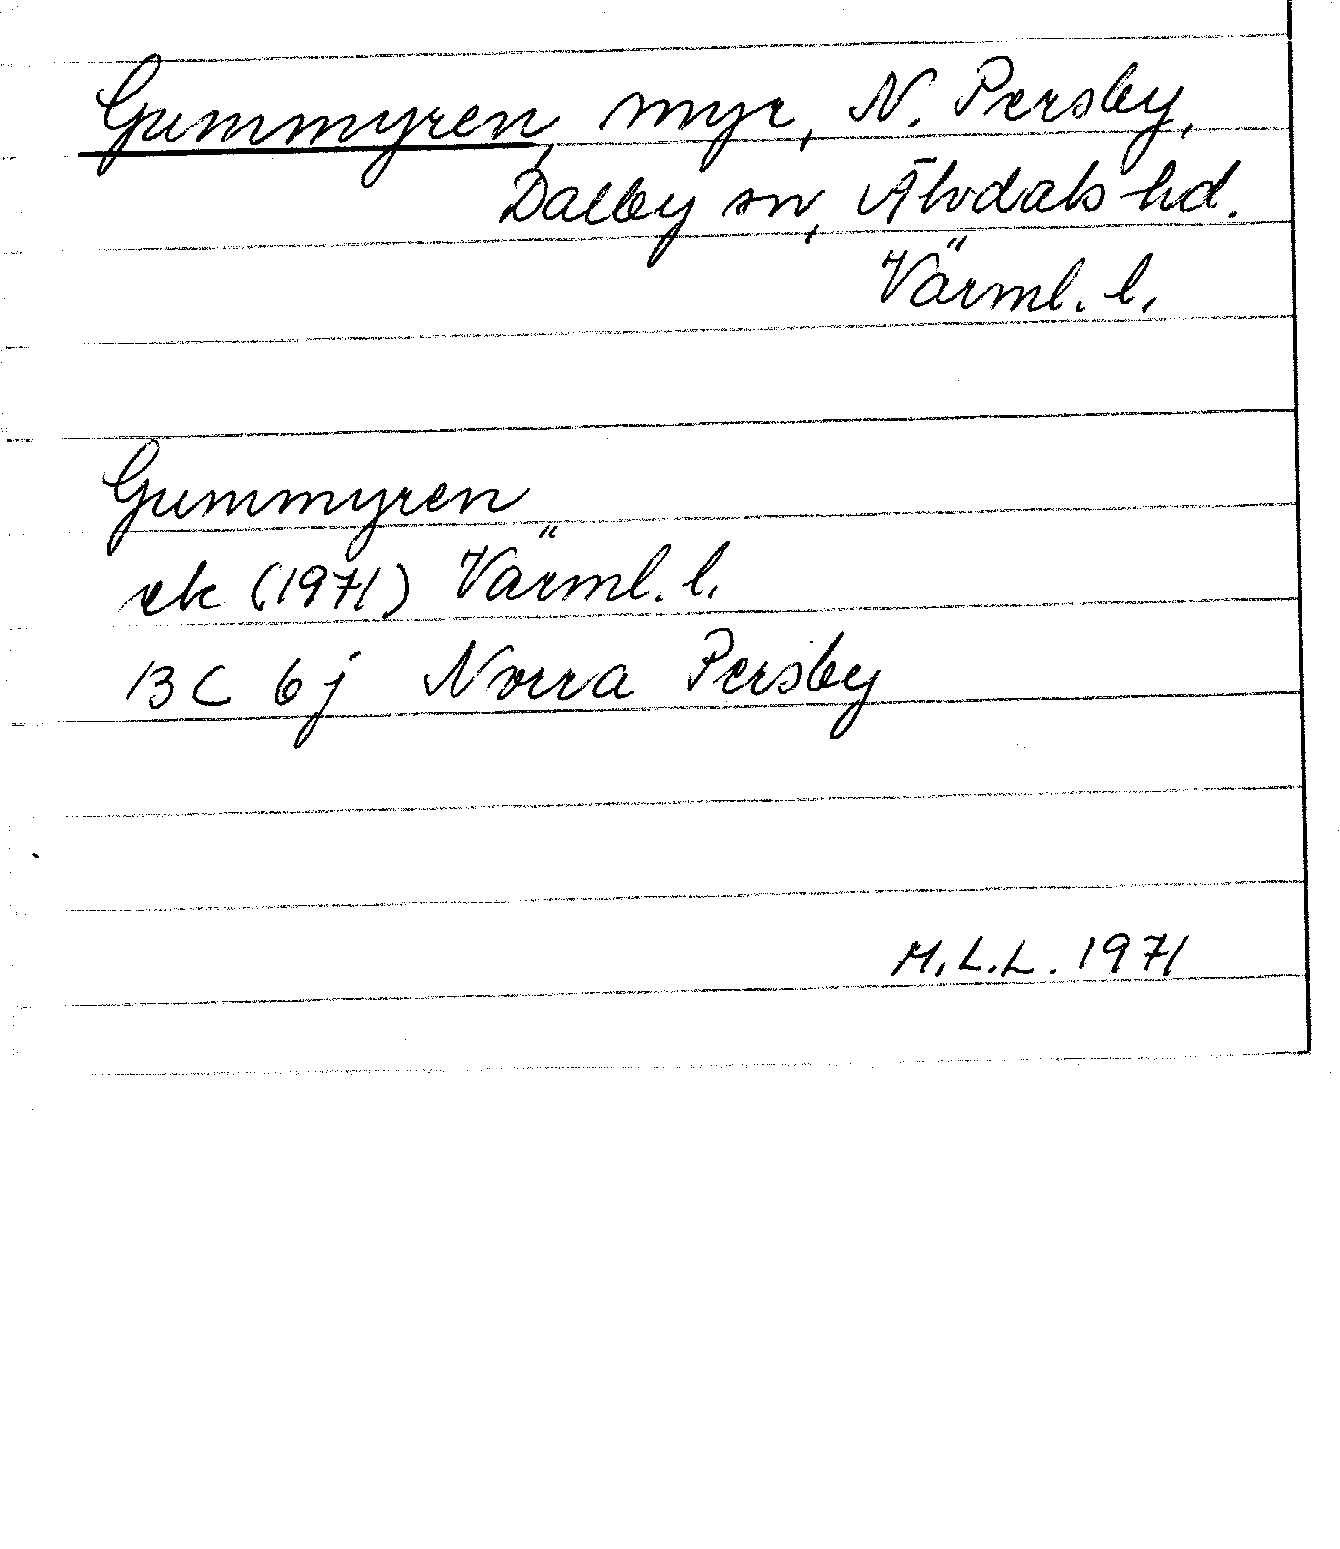 Gummyren, myr, N. Persby,
Dalby sn, Älvdals hd.
Värml. l.
Gummyren
ek (1971) Värml. l.
13 C 6 j Norra Persby
M.L.L. 1971